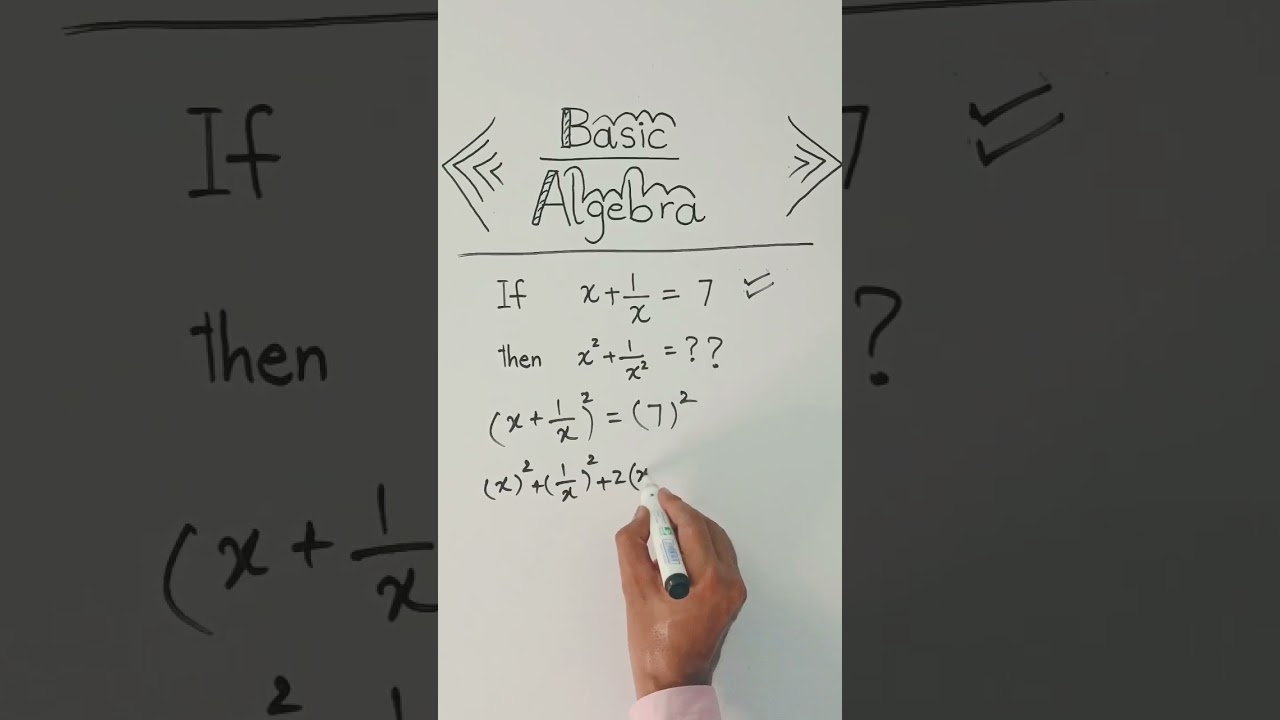 Basic
Algebra
If x + 1/x = 7
then x² + 1/x² = ??
(x + 1/x)² = (7)²
(x)² + (1/x)² + 2(x